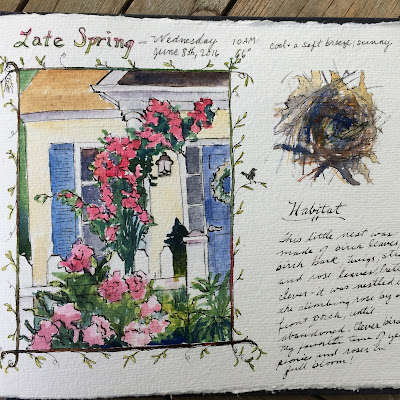 Late Spring - Wednesday 10 AM cool + a soft breeze; sunny
June 8th, 2016 66°
Habitat
This little nest was
made of birch leaves,
birch bark, twigs,
and rose leaves.
clever - it was nestled in
our climbing rose by our
front porch, until
abandoned. Clever birds
My favorite time of year
peonies and roses in
full bloom!